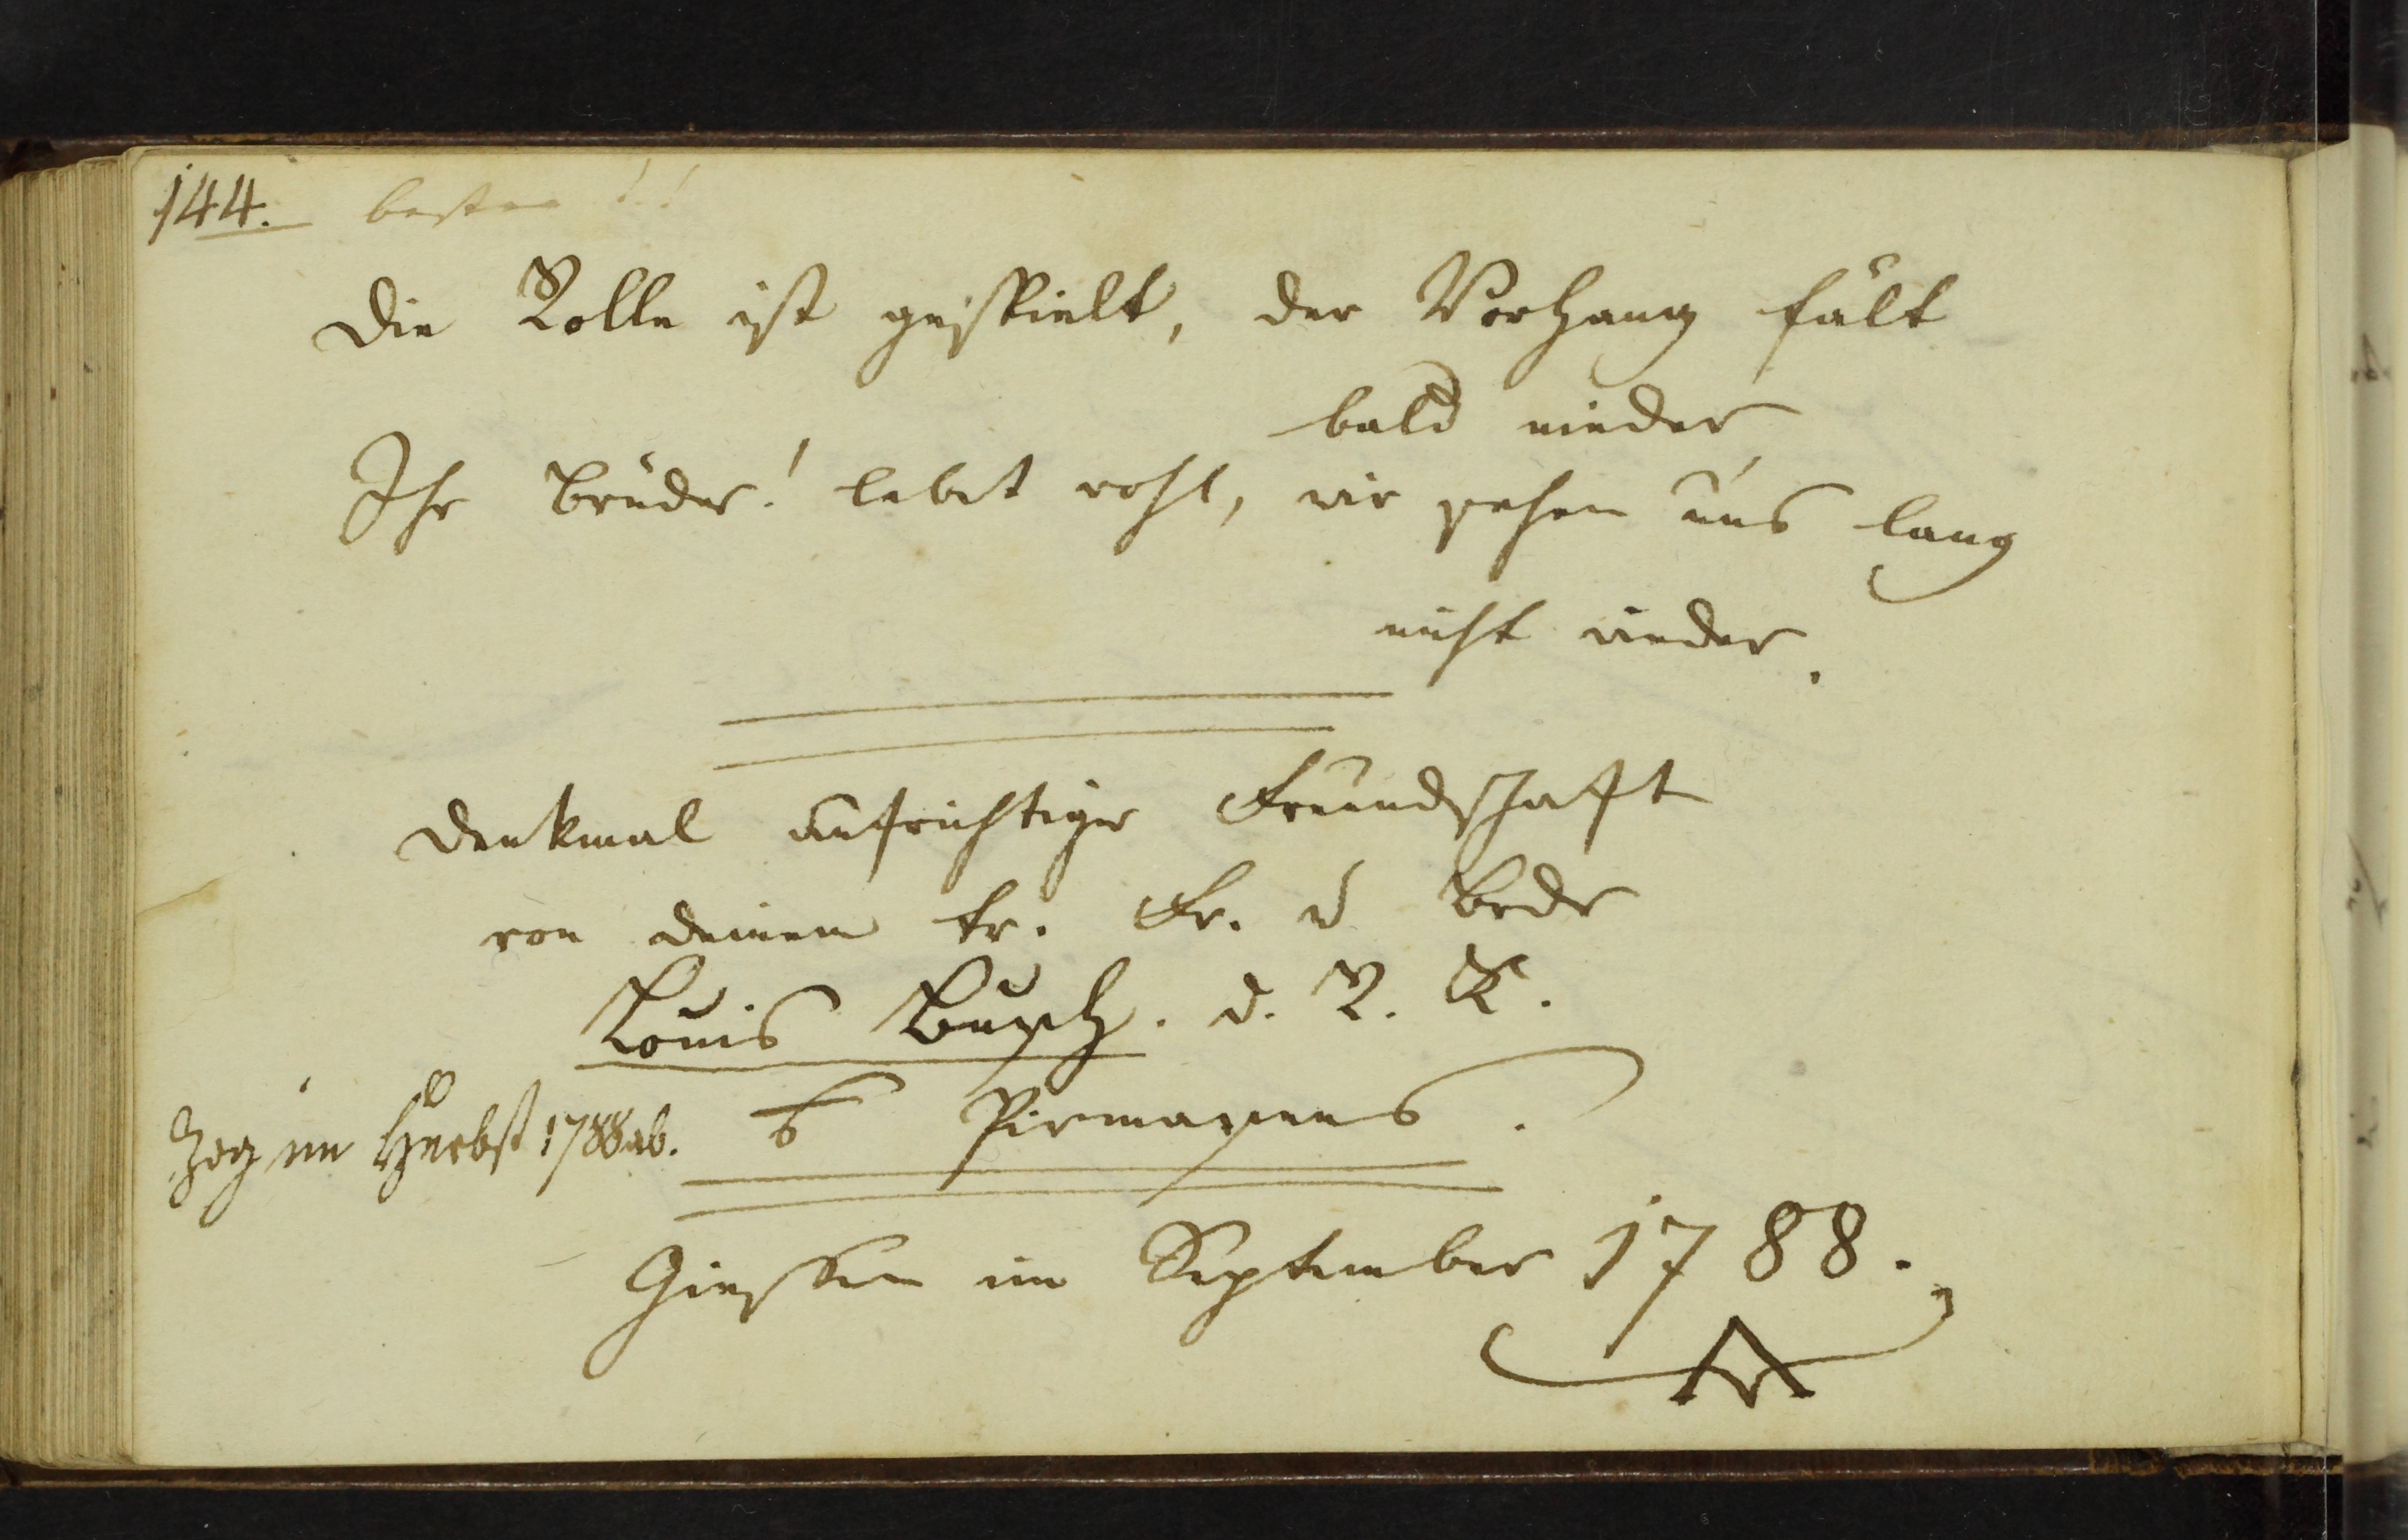 144. besten !!
Die Rolle ist gespielt, der Vorhang fält
bald nieder
Ihr Brüder! lebet wohl, wir sehen uns lang
nicht wieder.
Denkmal aufrichtiger Freundschaft
von deinem tr. Fr. u Brdr
Louis Busch. d. R. K.
Zog im Herbst 1788 ab. Pirmasens.
Giessen im September 1788.